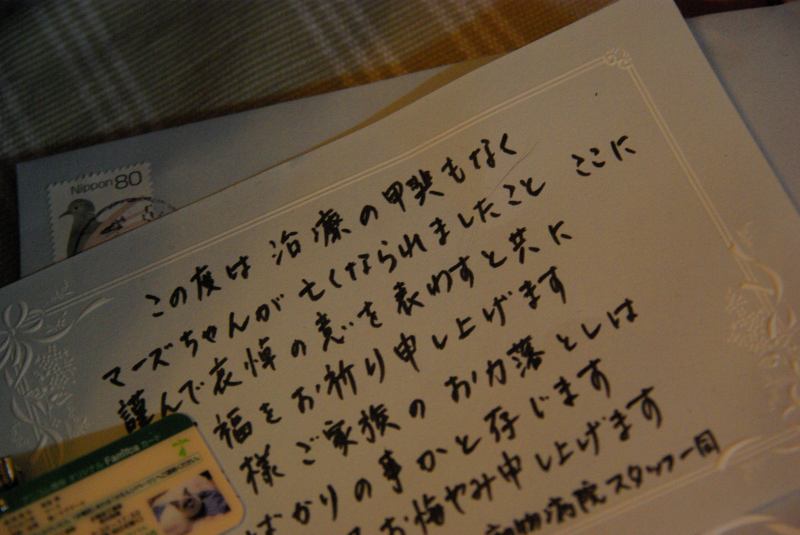 Nippon 80
この度は 治療の甲斐もなく
マーズちゃんが亡くなられましたこと ここに
謹んで哀悼の意を表わすと共に
福をお祈り申し上げます
様 ご家族の お力落としは
ばかりの事かと存じます
お悔やみ申し上げます
動物病院スタッフ一同
オリジナル Fanltca カード